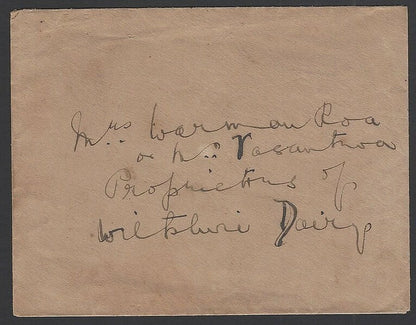 Mrs Warman Roa
or Mrs Vasantroa
Proprietors of
Wiltshire Dairy